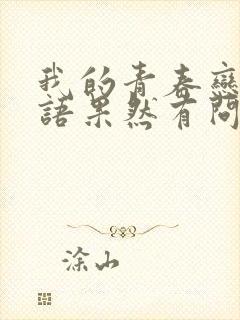 我的青春戀
語果然有問
涂山